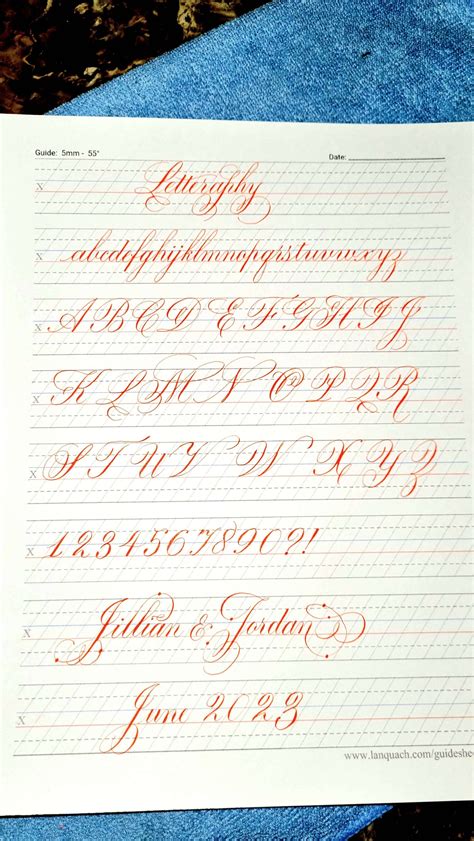 Guide: 5mm - 55°
Date:
x Letteraphy
x abcdefghijklmnopqrstuvwxyz
x A B C D E F G H I J
x K L M N O P Q R
x S T U V W X Y Z
x 1234567890?!
x Jillian & Jordan
x June 2023
www.lanquach.com/guideshe